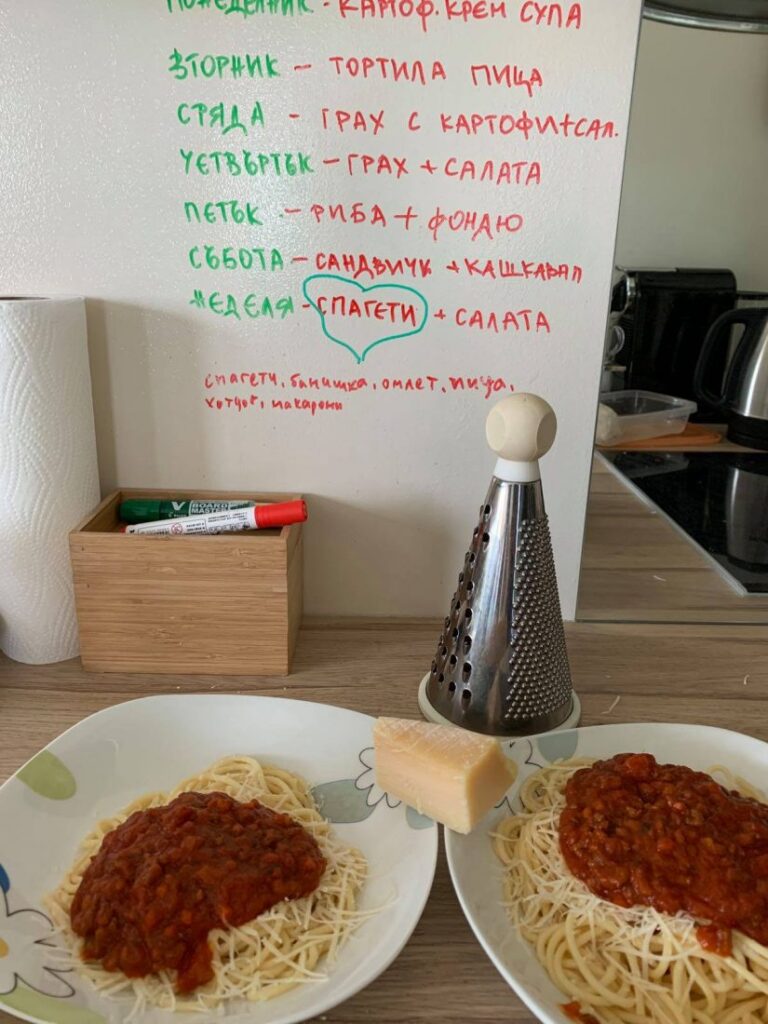 ПОНЕДЕЛНИК - КАРТОФ. КРЕМ СУПА
ВТОРНИК - ТОРТИЛА ПИЦА
СРЯДА - ГРАХ С КАРТОФИ+САЛ.
ЧЕТВЪРТЪК - ГРАХ + САЛАТА
ПЕТЪК - РИБА + ФОНДЮ
СЪБОТА - САНДВИЧИ + КАШКАВАЛ
НЕДЕЛЯ - СПАГЕТИ + САЛАТА
спагети, банишка, омлет, пица,
хотдог, макарони
V BOARD MASTER